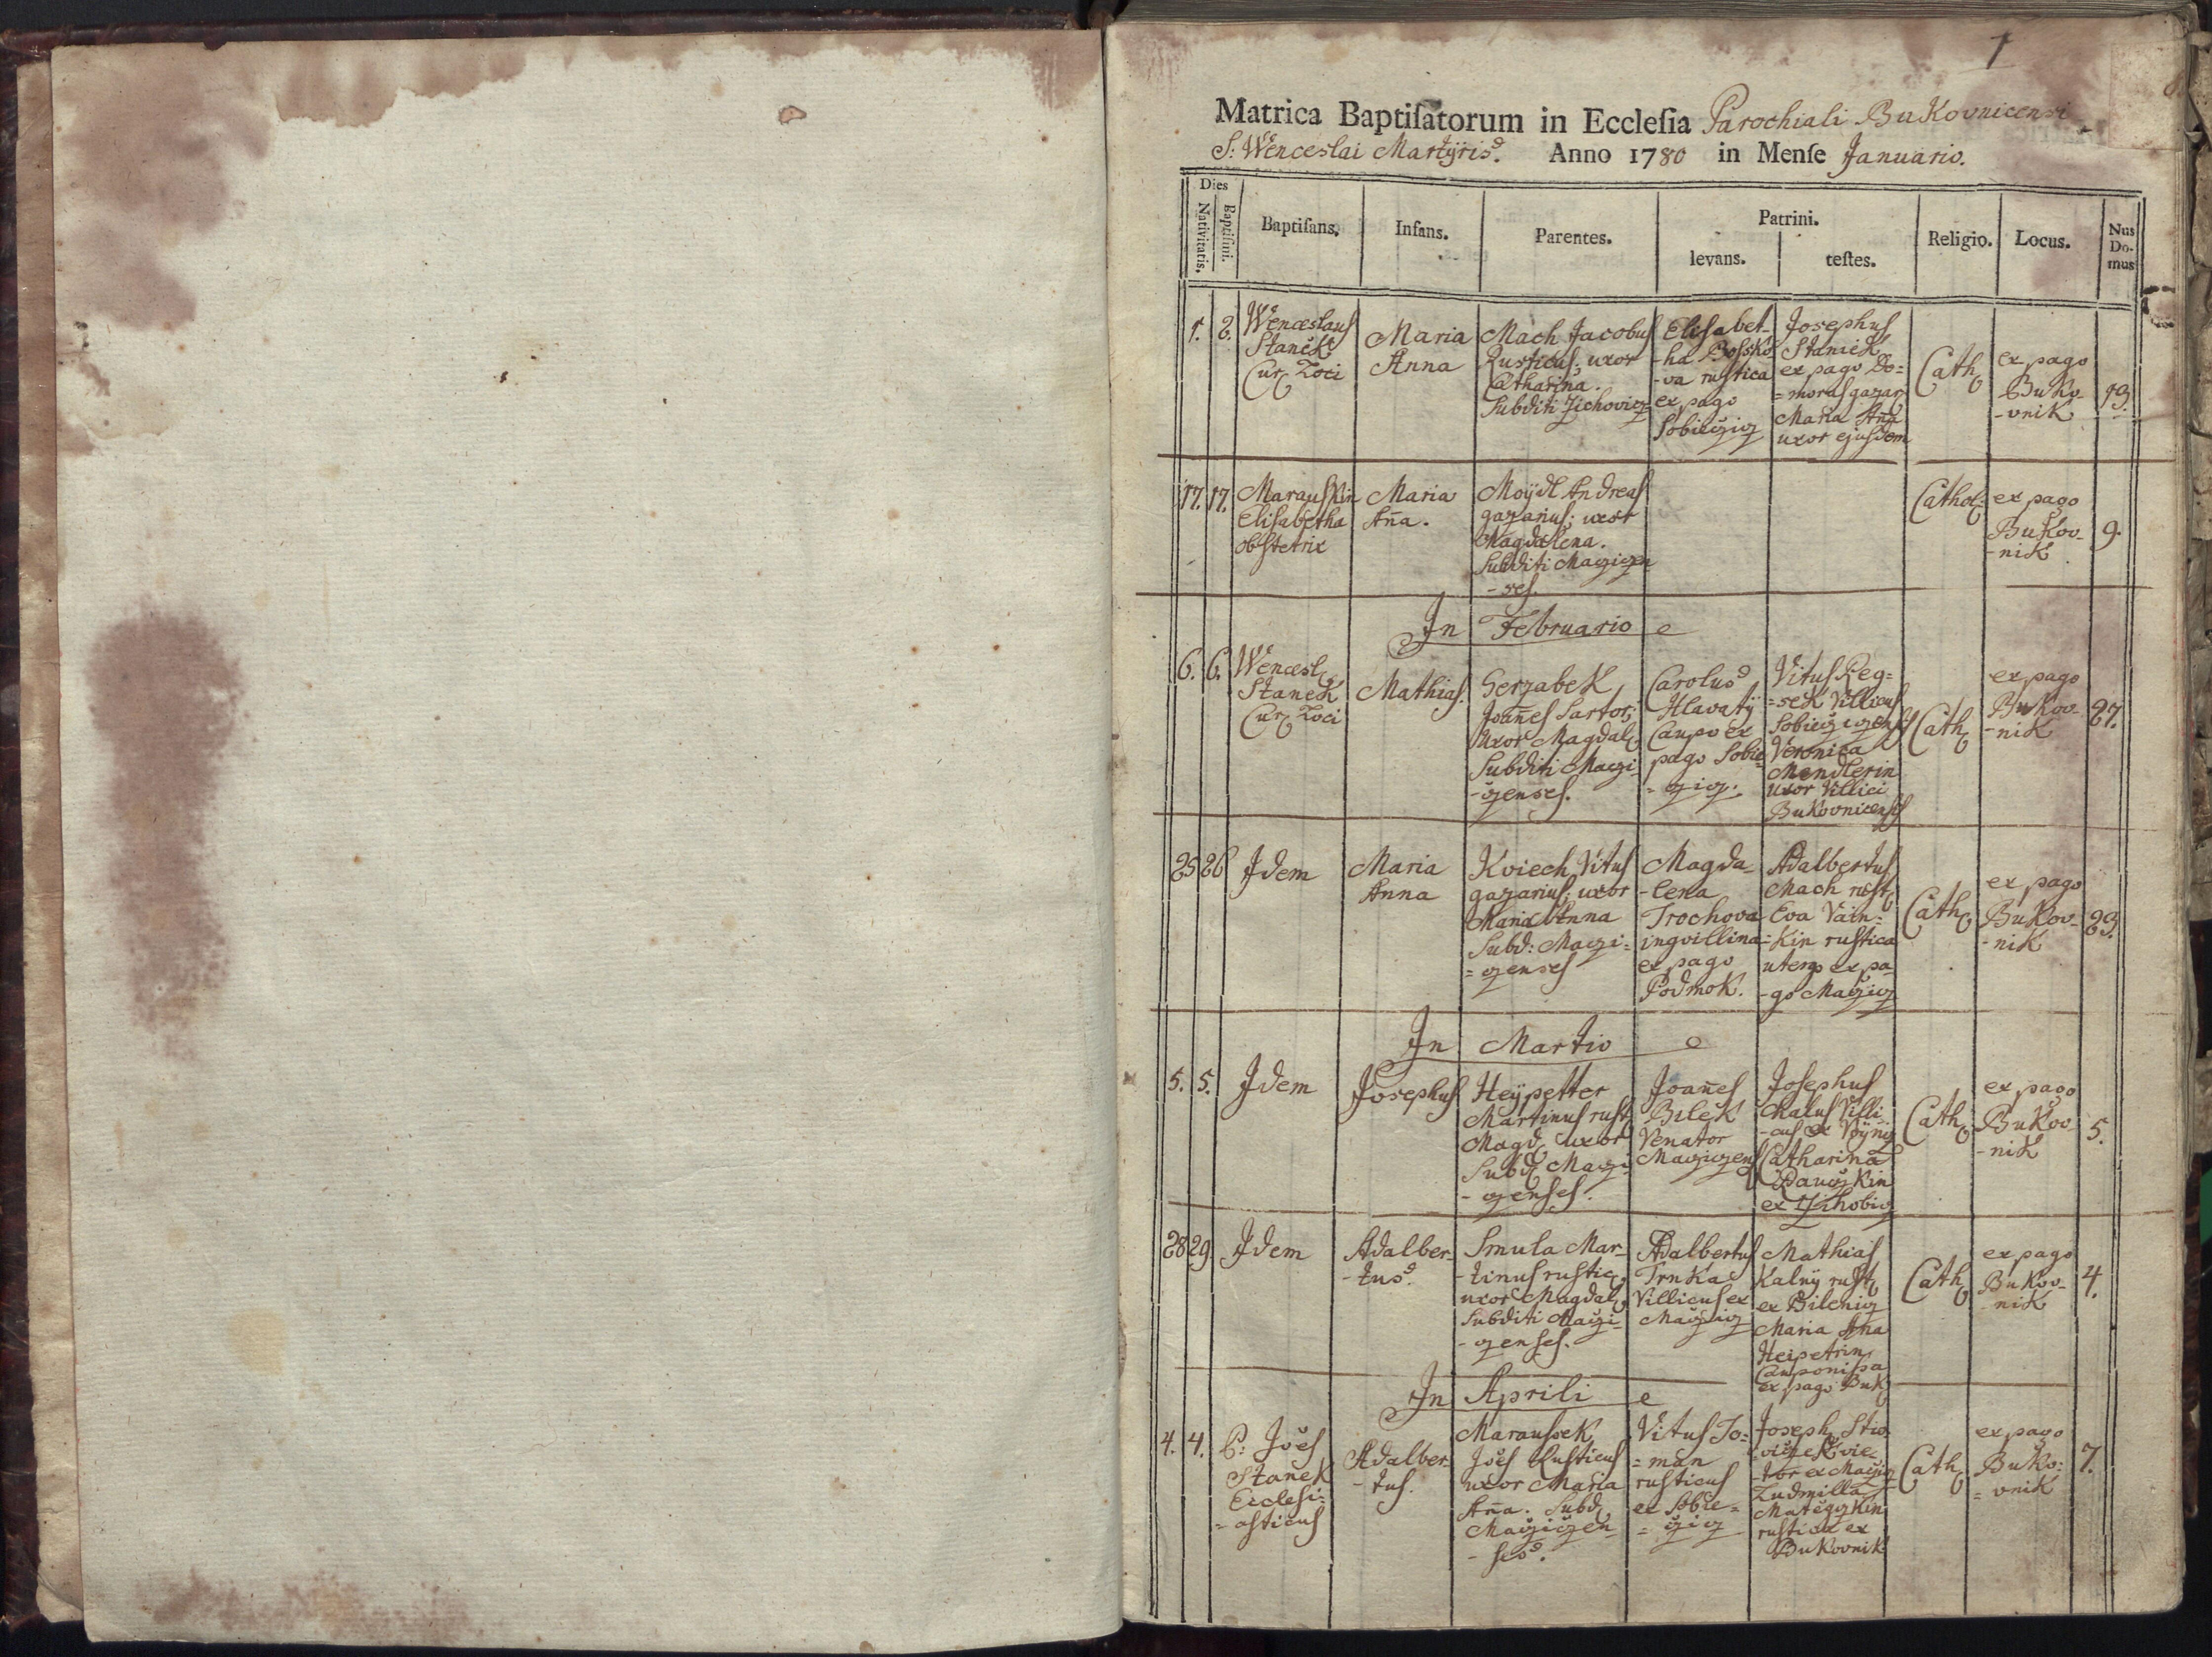 1
Matrica Baptiſatorum in Eccleſia Parochiali Bukovnicensi
S: Wenceslai Martyris. Anno 1780 in Menſe Januario.
Dies
Nativitatis. Baptiſmi. Baptiſans. Infans. Parentes. Patrini. levans. teſtes. Religio. Locus. Nus Do-mus
1. 2.
Wenceslaus
Stanek
Cur. Loci
Maria
Anna
Mach Jacobus
Rusticus; uxor
Catharina.
Subditi Zichovicz
Elisabet-
-ha
-va rustica
ex pago
Sobieczicz
Josephus
Staniek
ex pago Do=
=moras gazar
Maria Ana
uxor ejusdem
Cath
ex pago
Buko-
-vnik
19.
17. 17.
Marauskin
Elisabetha
obstetrix
Maria
Ana.
Moydl Andreas
gazarius; uxor
Magdalena.
Subditi Macziczen
-ses.
Cathol
ex pago
Bukov-
-nik
9.
In Februario
6. 6.
Wencesl
Stanek
Cur Loci
Mathias.
Gerzabek
Joanes Sartor;
Uxor Magdal
Subditi Maczi-
-czenses.
Carolus
Hlavaty
Caupo ex
pago Sobie
=czicz.
Vitus Reg=
=sek Villicus
Sobieczicensis
Veronica
Mendlerin
Uxor Villici
Bukovnicensis
Cath
ex pago
Bukov-
-nik
27.
25 26
Idem
Maria
Anna
Kviech Vitus
gazarius; uxor
Maria Anna
Subd: Maczi=
=czenses
Magda-
-lena
Trochova
inqvillina
ex pago
Podmok.
Adalbertus
Mach rust
Eva Vain=
=kin rustica
uterq ex pa-
-go Maczicz
Cath
ex pago
Bukov-
-nik
23.
In Martio
5. 5.
Idem
Josephus
Heypetter
Martinus rust
Magd uxor
Subd Maczi-
-czenses.
Joanes
Bilek
Venator
Macziczens
Josephus
Kalus Villi-
-cus ex
Catharina
Pauczkin
ex Zihobicz
Cath
ex pago
Bukov-
-nik
5.
28 29
Idem
Adalber-
-tus.
Smula Mar-
-tinus rustic
uxor Magdal
Subditi Maczi-
-czenses.
Adalbertus
Trnka
Villicus ex
Maczicz
Mathias
Kalny rust
ex Bilenicz
Maria Ana
Heipetrin
Cauponissa
ex pago Buk
Cath
ex pago
Bukov-
nik
4.
In Aprili
4. 4.
P: Joes
Stanek
Ecclesi=
=asticus
Adalber-
-tus.
Maraussek
Joes Rusticus
uxor Maria
Ana. Subd
Macziczen
-ses.
Vitus To=
=man
rusticus
ex Sobie=
=czicz
Joseph Stio
viczek vie-
-tor ex Maczicz
Ludmilla
Mateqzkin
rustica ex
Bukovnik
Cath
ex pago
Buko:
=vnik
7.